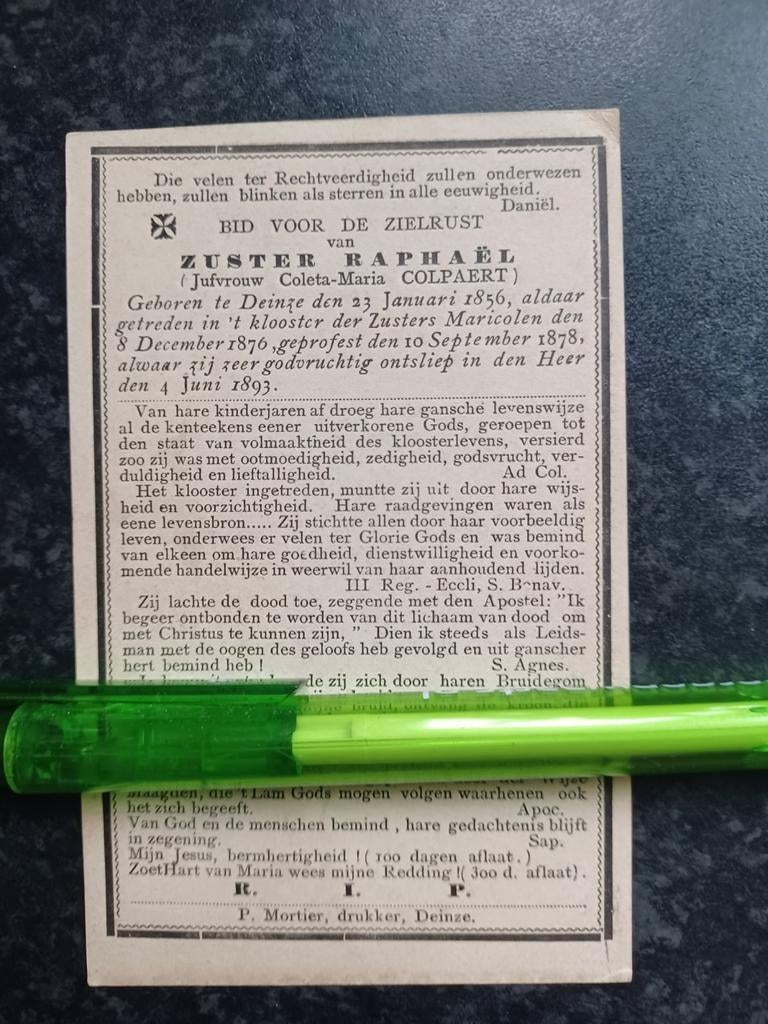 Die velen ter Rechtveerdigheid zullen onderwezen
hebben, zullen blinken als sterren in alle eeuwigheid.
Daniël.
BID VOOR DE ZIELRUST
van
ZUSTER RAPHAËL
(Jufvrouw Coleta-Maria COLPAERT)
Geboren te Deinze den 23 Januari 1856, aldaar
getreden in 't klooster der Zusters Maricolen den
8 December 1876, geprofest den 10 September 1878,
alwaar zij zeer godvruchtig ontsliep in den Heer
den 4 Juni 1893.
Van hare kinderjaren af droeg hare gansche levenswijze
al de kenteekens eener uitverkorene Gods, geroepen tot
den staat van volmaaktheid des kloosterlevens, versierd
zoo zij was met ootmoedigheid, zedigheid, godsvrucht, ver-
duldigheid en lieftalligheid. Ad Col.
Het klooster ingetreden, muntte zij uit door hare wijs-
heid en voorzichtigheid. Hare raadgevingen waren als
eene levensbron..... Zij stichtte allen door haar voorbeeldig
leven, onderwees er velen ter Glorie Gods en was bemind
van elkeen om hare goedheid, dienstwilligheid en voorko-
mende handelwijze in weerwil van haar aanhoudend lijden.
III Reg. - Eccli, S. Bonav.
Zij lachte de dood toe, zeggende met den Apostel: "Ik
begeer ontbonden te worden van dit lichaam van dood om
met Christus te kunnen zijn, " Dien ik steeds als Leids-
man met de oogen des geloofs heb gevolgd en uit ganscher
hert bemind heb ! S. Agnes.
de zij zich door haren Bruidegom
bruid, ontvang de kroon die
door der Wijze
Maagden, die 't Lam Gods mogen volgen waarhenen ook
het zich begeeft. Apoc.
Van God en de menschen bemind, hare gedachtenis blijft
in zegening. Sap.
Mijn Jesus, bermhertigheid ! (100 dagen aflaat.)
Zoet Hart van Maria wees mijne Redding !(300 d. aflaat).
R. I. P.
P. Mortier, drukker, Deinze.